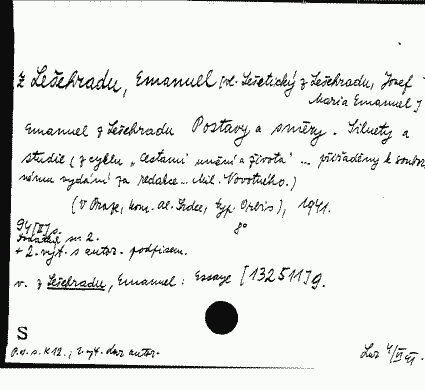 z Lešehradu, Emanuel [vl. Lešetický z Lešehradu, Josef
Maria Emanuel]
Emanuel z Lešehradu Postavy a směry. Siluety a
studie (z cyklu „Cestami umění a života" ... přiřaděny k soubor-
nému vydání za redakce... Mil. Novotného.)
(V Praze, kom. Al. Srdce, typ. Orbis), 1941.
8°
94[II] s.
2.
+ 2. výt. s autor. podpisem.
v. z Lešehradu, Emanuel: Essaye [132511] g.
S
P. n. s. K 12.; 2. výt. dar autor.